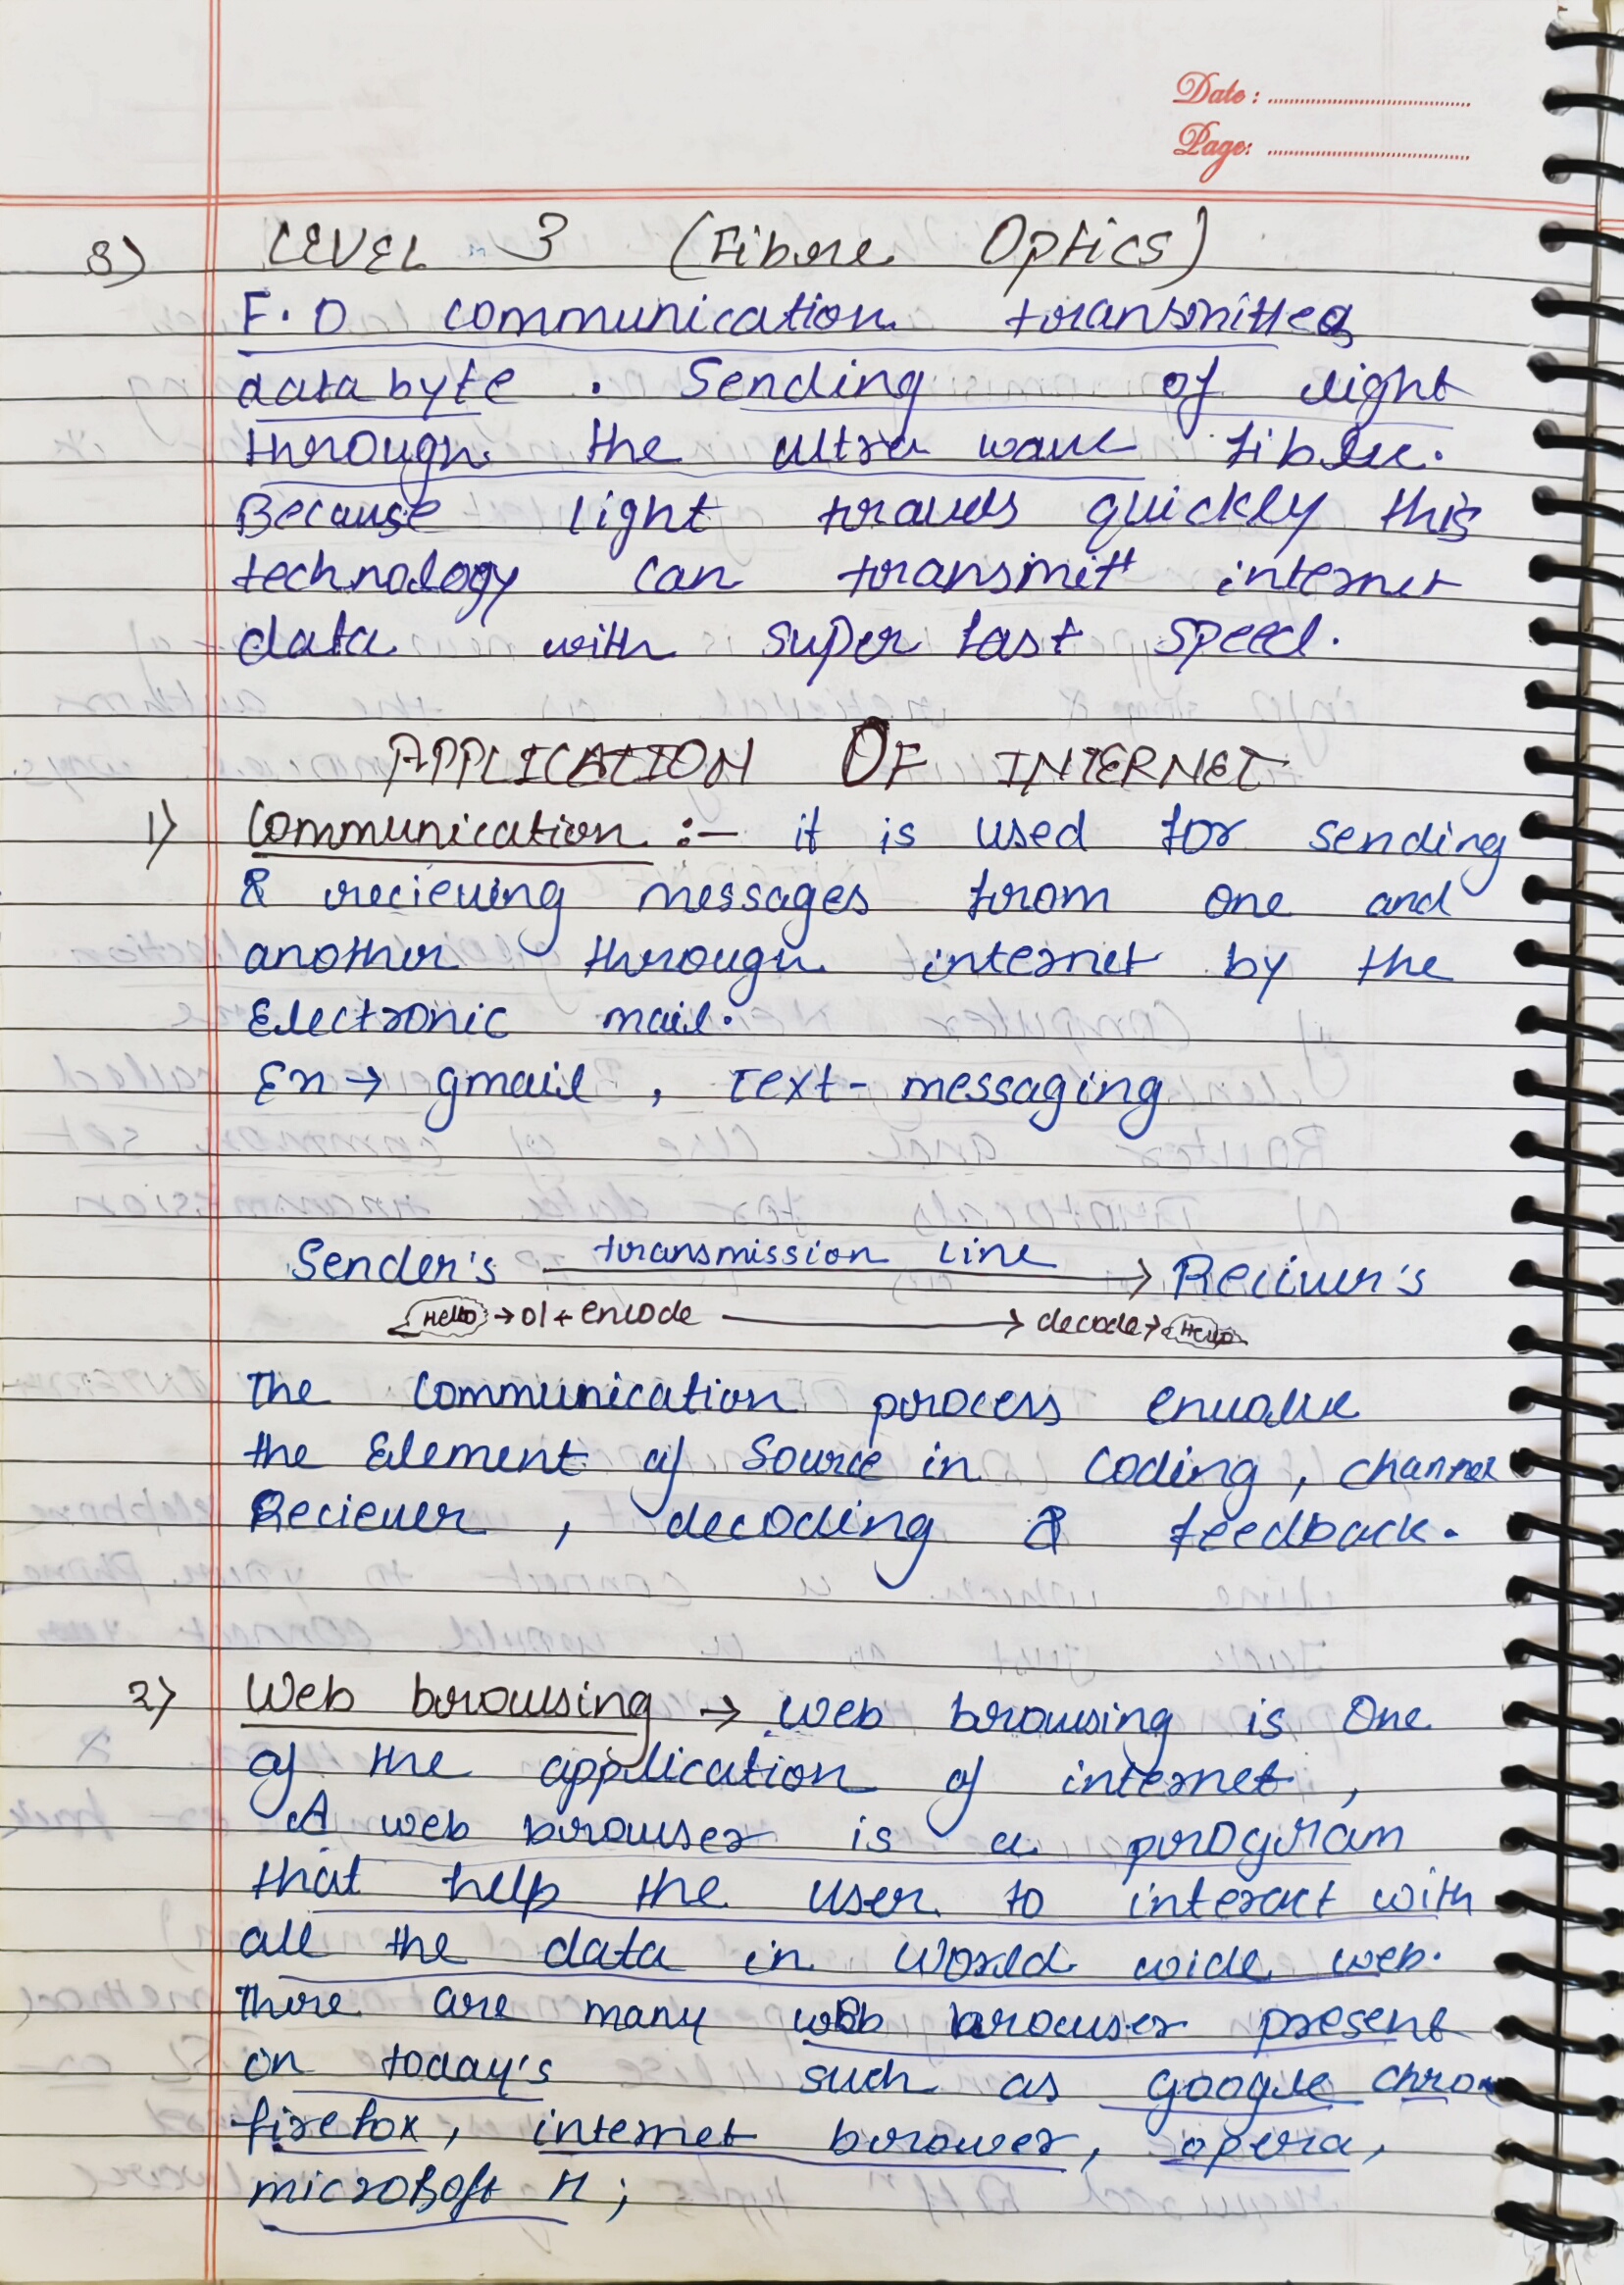 Date :
Page:
3) LEVEL - 3 (Fibre Optics)
F.O communication transmitted
data byte . Sending of light
through the ultra wave fibre.
Because light travels quickly this
technology can transmitt internet
data with super fast speed.
APPLICATION OF INTERNET
1) Communication :- it is used for sending
& recieving messages from one and
another through internet by the
Electronic mail.
Ex → gmail , Text - messaging
Sender's transmission line → Reciver's
Hello → 01 + encode → decode → Hello
The communication process envolve
the Element of Source in coding , channel
Reciever , decoding & feedback.
2) Web browsing → web browsing is One
of the application of internet ,
A web browser is a program
that help the user to interact with
all the data in World wide web.
There are many web browser present
on today's such as google chrom
firefox, internet browser, opera,
microsoft H ;